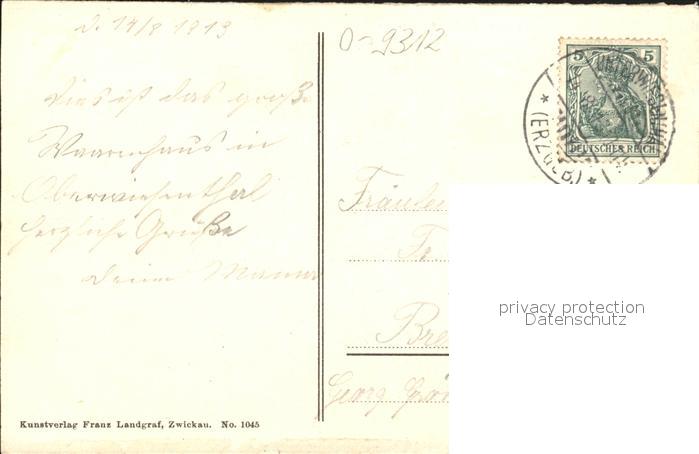 d. 14/8 1913
Dies ist das große
Waarenhaus in
Oberwiesenthal
herzliche Grüße
deine Mama
Kunstverlag Franz Landgraf, Zwickau. No. 1045
0-9312
5 5
DEUTSCHES REICH
* (ERZGEB.) *
Fräulein
Fr.
Bre
Georg
privacy protection
Datenschutz